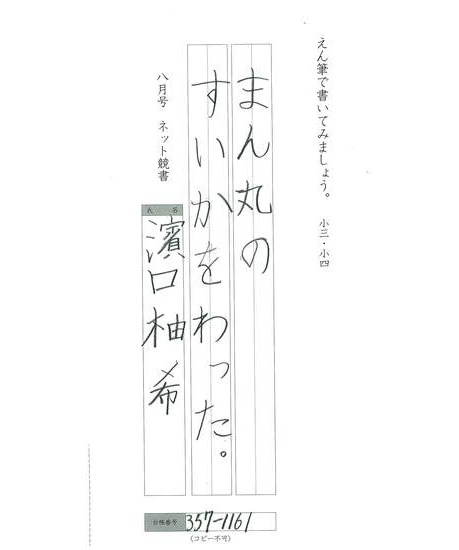 えん筆で書いてみましょう。 小三・小四
まん丸の
すいかをわった。
八月号 ネット競書
氏名
濱口柚希
台帳番号 357-1161
(コピー不可)